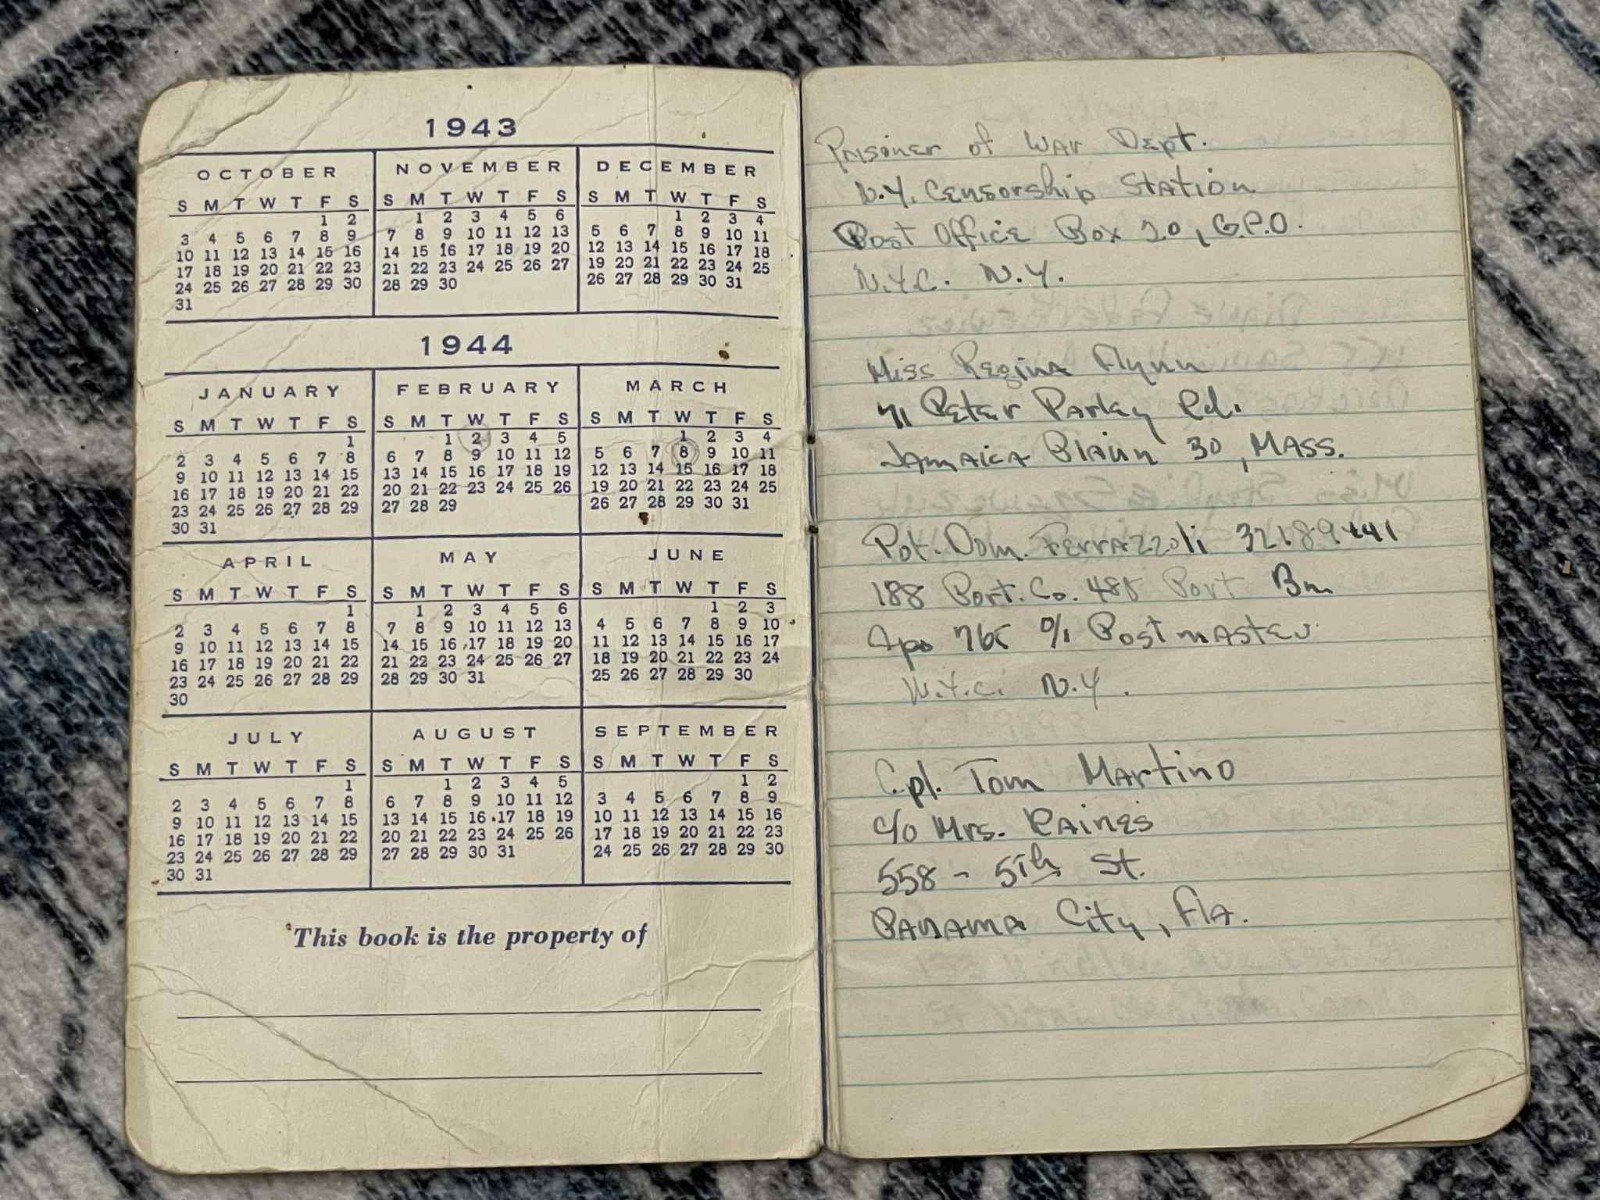 1943
OCTOBER
S M T W T F S
1 2
3 4 5 6 7 8 9
10 11 12 13 14 15 16
17 18 19 20 21 22 23
24 25 26 27 28 29 30
31
NOVEMBER
S M T W T F S
1 2 3 4 5 6
7 8 9 10 11 12 13
14 15 16 17 18 19 20
21 22 23 24 25 26 27
28 29 30
DECEMBER
S M T W T F S
1 2 3 4
5 6 7 8 9 10 11
12 13 14 15 16 17 18
19 20 21 22 23 24 25
26 27 28 29 30 31
1944
JANUARY
S M T W T F S
1
2 3 4 5 6 7 8
9 10 11 12 13 14 15
16 17 18 19 20 21 22
23 24 25 26 27 28 29
30 31
FEBRUARY
S M T W T F S
1 2 3 4 5
6 7 8 9 10 11 12
13 14 15 16 17 18 19
20 21 22 23 24 25 26
27 28 29
MARCH
S M T W T F S
1 2 3 4
5 6 7 8 9 10 11
12 13 14 15 16 17 18
19 20 21 22 23 24 25
26 27 28 29 30 31
APRIL
S M T W T F S
1
2 3 4 5 6 7 8
9 10 11 12 13 14 15
16 17 18 19 20 21 22
23 24 25 26 27 28 29
30
MAY
S M T W T F S
1 2 3 4 5 6
7 8 9 10 11 12 13
14 15 16 17 18 19 20
21 22 23 24 25 26 27
28 29 30 31
JUNE
S M T W T F S
1 2 3
4 5 6 7 8 9 10
11 12 13 14 15 16 17
18 19 20 21 22 23 24
25 26 27 28 29 30
JULY
S M T W T F S
1
2 3 4 5 6 7 8
9 10 11 12 13 14 15
16 17 18 19 20 21 22
23 24 25 26 27 28 29
30 31
AUGUST
S M T W T F S
1 2 3 4 5
6 7 8 9 10 11 12
13 14 15 16 17 18 19
20 21 22 23 24 25 26
27 28 29 30 31
SEPTEMBER
S M T W T F S
1 2
3 4 5 6 7 8 9
10 11 12 13 14 15 16
17 18 19 20 21 22 23
24 25 26 27 28 29 30
This book is the property of
Prisoner of War Dept.
N.Y. Censorship Station
Post Office Box 20, G.P.O.
N.Y.C. N.Y.
Miss Regina Flynn
71 Peter Parley Rd.
Jamaica Plain 30, MASS.
Pvt. Dom. Ferrazzoli
188 Port. Co. Port Bn
Apo Postmaster
N.Y.C. N.Y.
Cpl. Tom Martino
c/o Mrs. Raines
558 - 5th St.
Panama City, Fla.